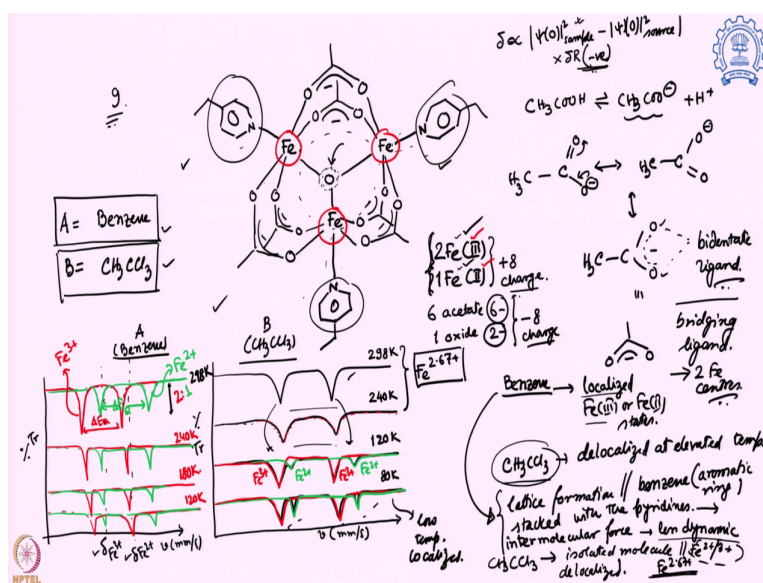 9.
A = Benzene
B = CH3CCl3
Fe
Fe
O
Fe
N
N
N
O
O
O
O
O
O
O
O
O
O
O
O
δ ∝ |Ψ(0)|² sample − |Ψ(0)|² source
× δR (-ve)
CH3COOH ⇌ CH3COO⊖ + H+
H3C − C
O
O⊖
↔
H3C − C
O⊖
O
H3C − C
O
O
bidentate
ligand.
bridging
ligand.
→ 2 Fe
centres.
O O
2Fe(III)
1Fe(II)
+8
charge.
6 acetate 6-
1 oxide 2-
-8
charge
A
(Benzene)
Fe3+
Fe2+
298K
2:1
ΔEQ
240K
180K
120K
% Tr
δFe2+
δFe3+
υ (mm/s)
B
(CH3CCl3)
298K
240K
Fe2.67+
120K
Fe3+ Fe2+ Fe3+ Fe2+
80K
% Tr
υ (mm/s)
Low
temp.
localized.
Benzene → localized
Fe(III) or Fe(II)
states.
CH3CCl3 → delocalized at elevated temp
lattice formation // benzene (aromatic
ring)
stacked with the pyridines. →
intermolecular force → less dynamic
Fe2+/3+
CH3CCl3 → isolated molecule //
delocalized. Fe2.67+
NPTEL